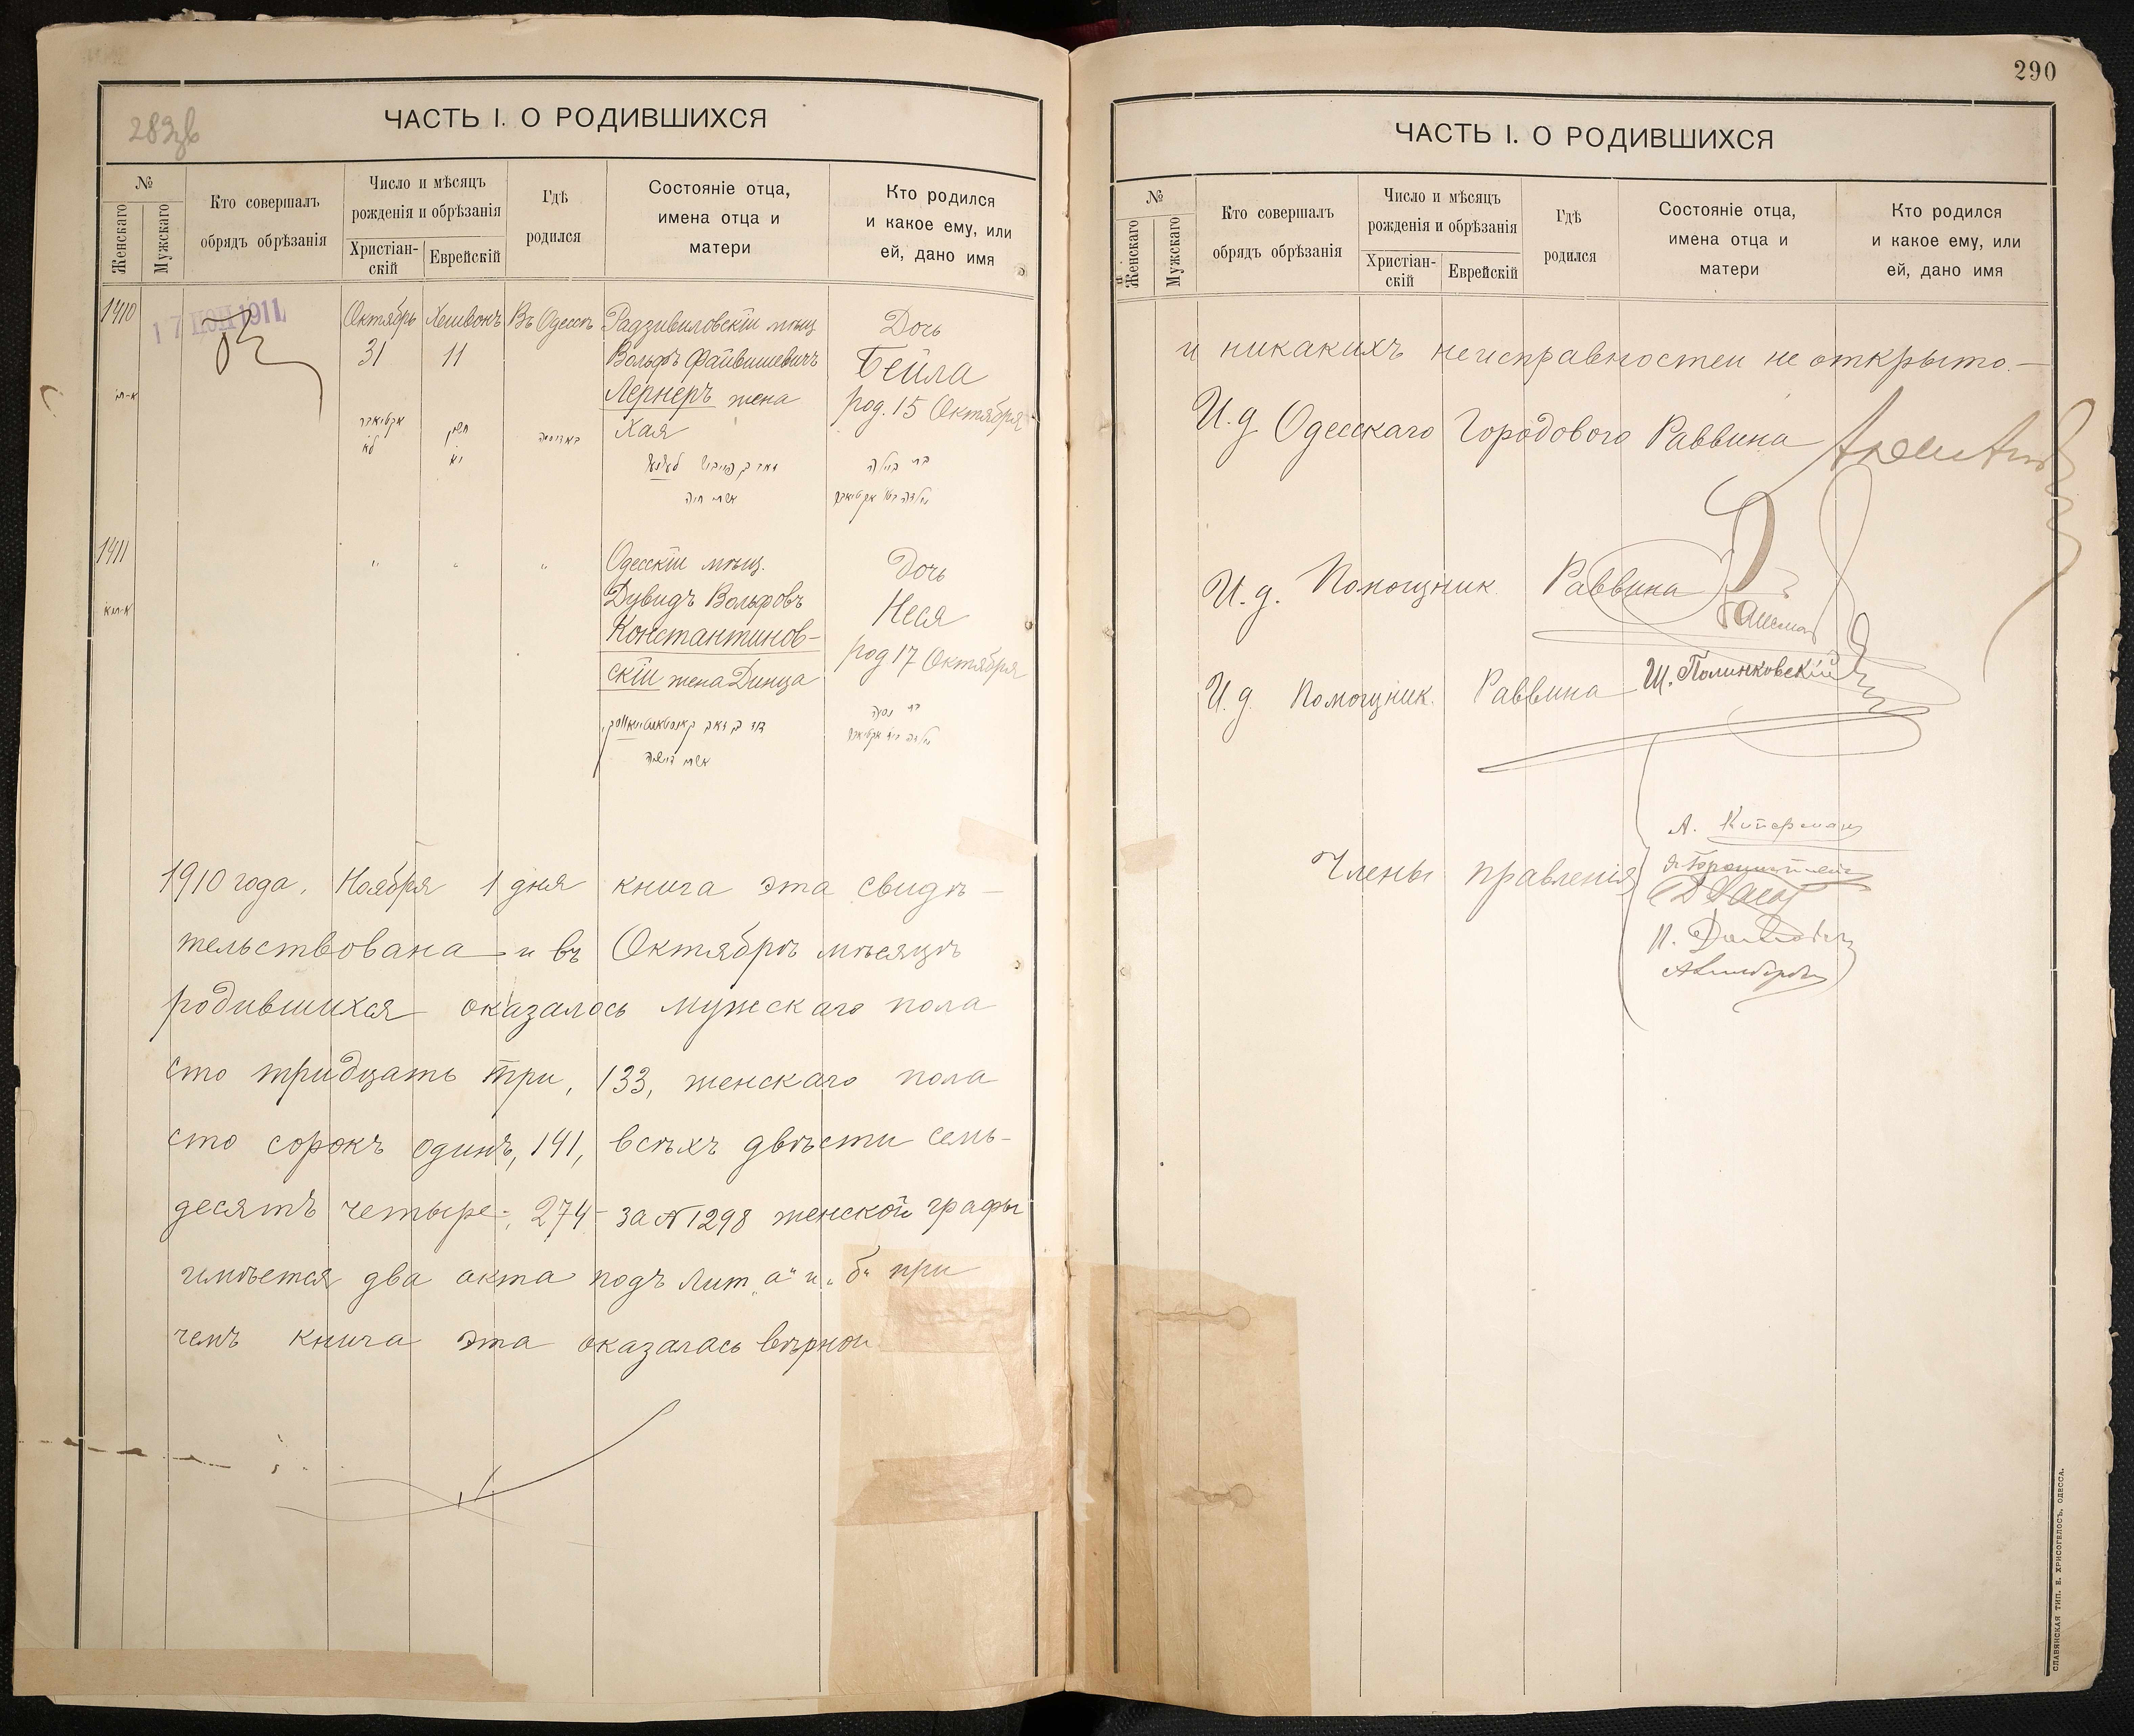 ЧАСТЬ I. О РОДИВШИХСЯ
№
Женскаго
Мужскаго
Кто совершалъ
обрядъ обрѣзанія
Число и мѣсяцъ
рожденія и обрѣзанія
Христіан-
скій
Еврейскій
Гдѣ
родился
Состояніе отца,
имена отца и
матери
Кто родился
и какое ему, или
ей, дано имя
1410
Октябрь
31
Хешвонъ
11
Въ Одессѣ
Радзивиловскій мѣщ
Вольфъ Файвишевичъ
Лернеръ жена
Хая
Дочь
Бейла
род. 15 Октября
אקטיאבר
לא
חשון
יא
באדיסה
אשתו חיה
בת ביילה
1411
"
"
"
Одесскій мѣщ.
Дувидъ Вольфовъ
Константинов-
скій жена Динца
Дочь
Неся
род. 17 Октября
1910 года, Ноября 1 дня книга эта свидѣ-
тельствована и въ Октябрѣ мѣсяцѣ
родившихся оказалось мужскаго пола
сто тридцать три, 133, женскаго пола
сто сорокъ одинъ, 141, всѣхъ двѣсти семь-
десятъ четыре, 274 - за № 1298 женской графы
имѣется два акта подъ Лит „а" и „б" при
чемъ книга эта оказалась вѣрной
290
ЧАСТЬ I. О РОДИВШИХСЯ
№
Женскаго
Мужскаго
Кто совершалъ
обрядъ обрѣзанія
Число и мѣсяцъ
рожденія и обрѣзанія
Христіан-
скій
Еврейскій
Гдѣ
родился
Состояніе отца,
имена отца и
матери
Кто родился
и какое ему, или
ей, дано имя
и никакихъ неисправностей не открыто.—
И.д. Одесскаго Городового Раввина
И.д. Помощник Раввина
И.д. Помощник. Раввина Ш. Полинковскій
Члены правленія
СЛАВЯНСКАЯ ТИП. Е. ХРИСОГЕЛОСЪ, ОДЕССА.